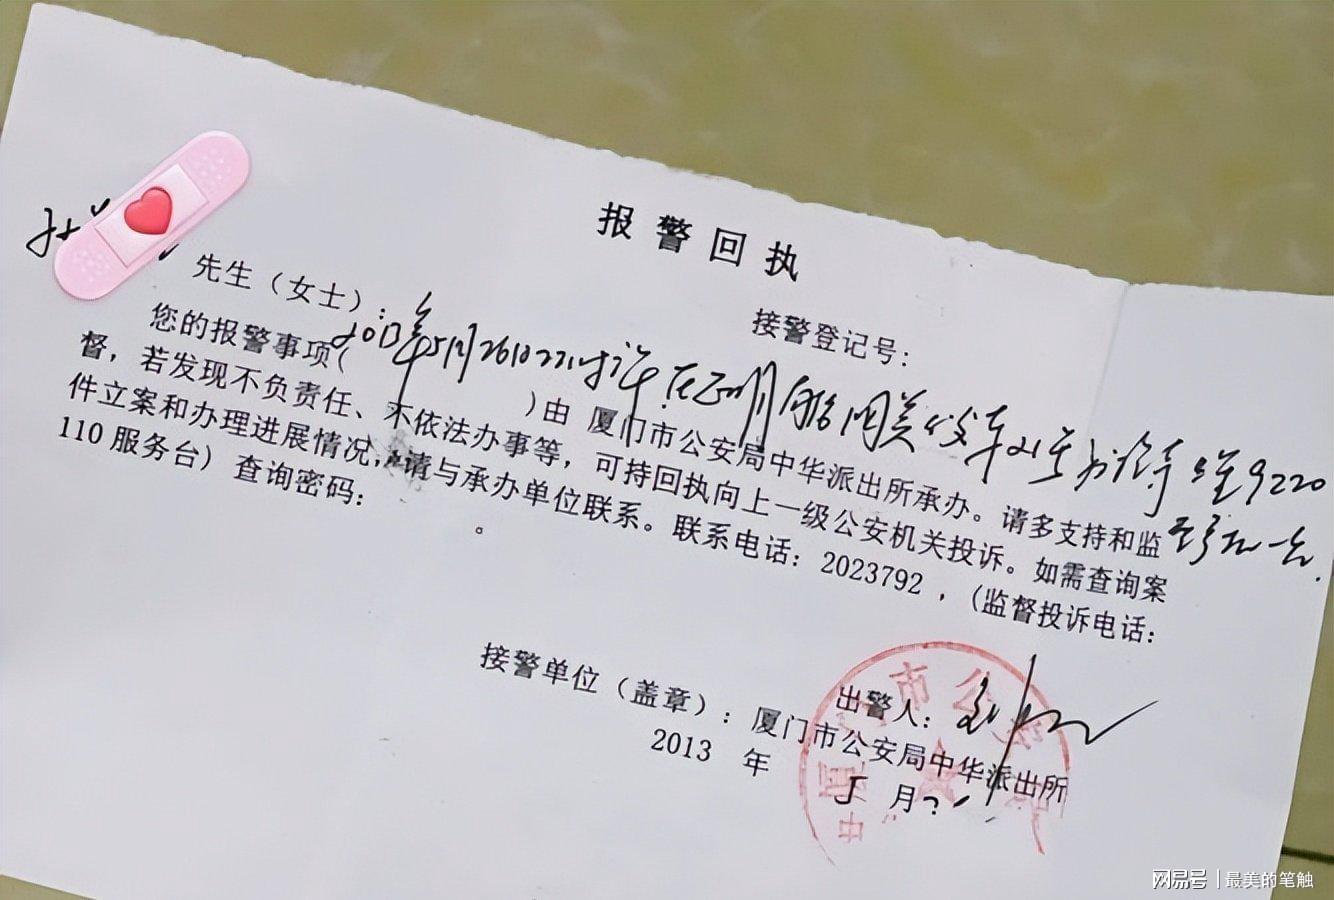 报警回执
接警登记号：
先生（女士）：
您的报警事项（2013年5月26日22时许在
）由 厦门市公安局中华派出所承办。请多支持和监
督，若发现不负责任、不依法办事等，可持回执向上一级公安机关投诉。如需查询案
件立案和办理进展情况，请与承办单位联系。联系电话：2023792，（监督投诉电话：
110服务台）查询密码： 。
出警人：
接警单位（盖章）：厦门市公安局中华派出所
2013 年 5 月
网易号 | 最美的笔触